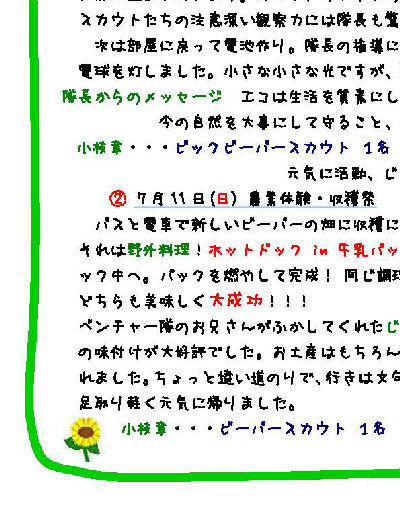 スカウトたちの注意深い観察力には隊長も驚
次は部屋に戻って電池作り。隊長の指導に
電球を灯しました。小さな小さな光ですが、
隊長からのメッセージ エコは生活を質素にし
今の自然を大事にして守ること、
小枝章・・・ビックビーバースカウト 1名
元気に活動、じ
② 7月11日(日) 農業体験・収穫祭
バスと電車で新しいビーバーの畑に収穫に
それは野外料理！ホットドック in 牛乳パッ
ック中へ。パックを燃やして完成！ 同じ調理
どちらも美味しく大成功！！！
ベンチャー隊のお兄さんがふかしてくれたじ
の味付けが大好評でした。お土産はもちろん
れました。ちょっと遠い道のりで、行きは文句
足取り軽く元気に帰りました。
小枝章・・・ビーバースカウト 1名